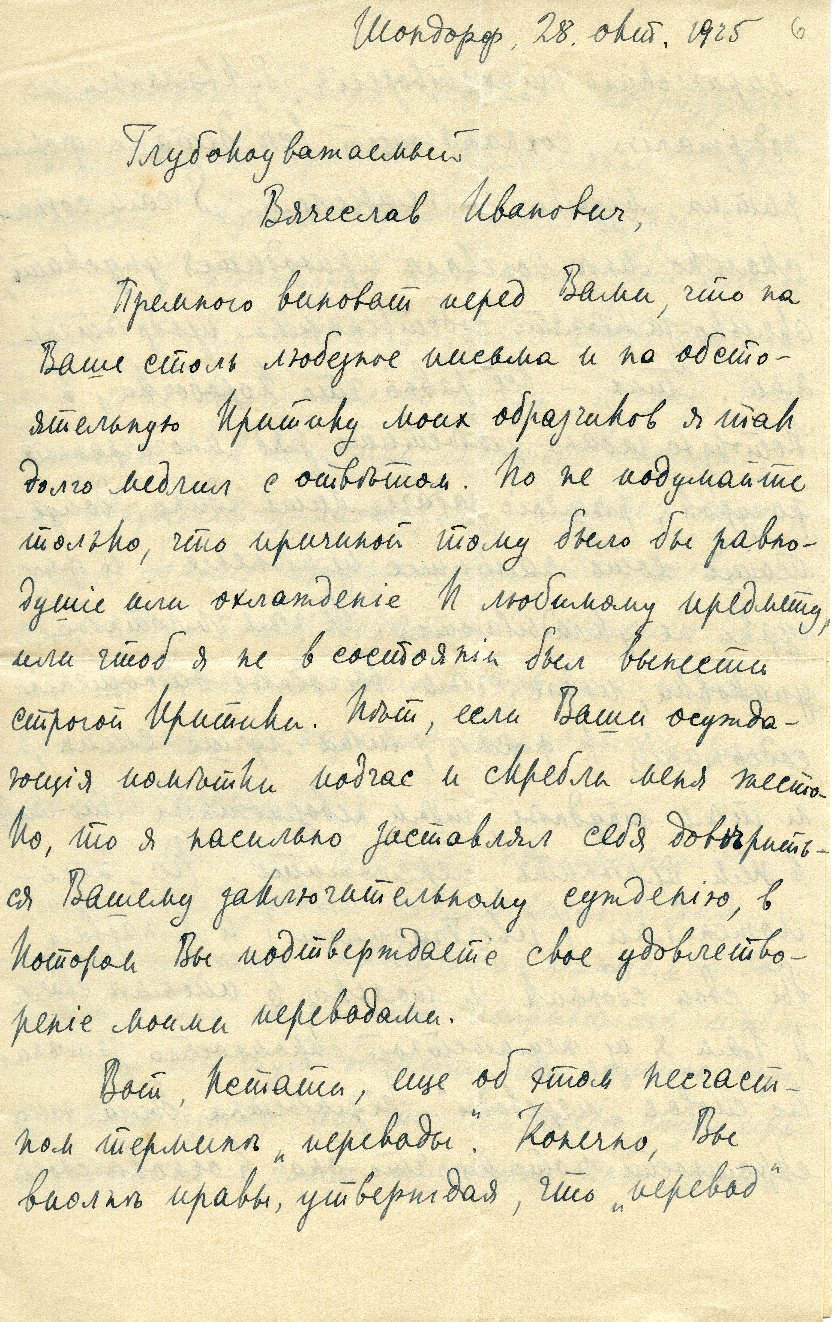 Шондорф, 28. окт. 1925 6
Глубокоуважаемый
Вячеслав Иванович,
Премного виноват перед Вами, что на
Ваше столь любезное письма и на обсто-
ятельную критику моих образчиков я так
долго медлил с отвѣтом. Но не подумайте
только, что причиной тому было бы равно-
душіе или охлажденіе к любимому предмету,
или чтоб я не в состояніи был вынести
строгой критики. Нѣт, если Ваши осужда-
ющія помѣтки подчас и скребли меня жесто-
ко, то я насильно заставлял себя довѣрить-
ся Вашему заключительному сужденію, в
котором Вы подтверждаете свое удовлетво-
реніе моими переводами.
Вот, кстати, еще об этом несчаст-
ном терминѣ „переводы“. Конечно, Вы
вполнѣ правы, утверждая, что „перевод“